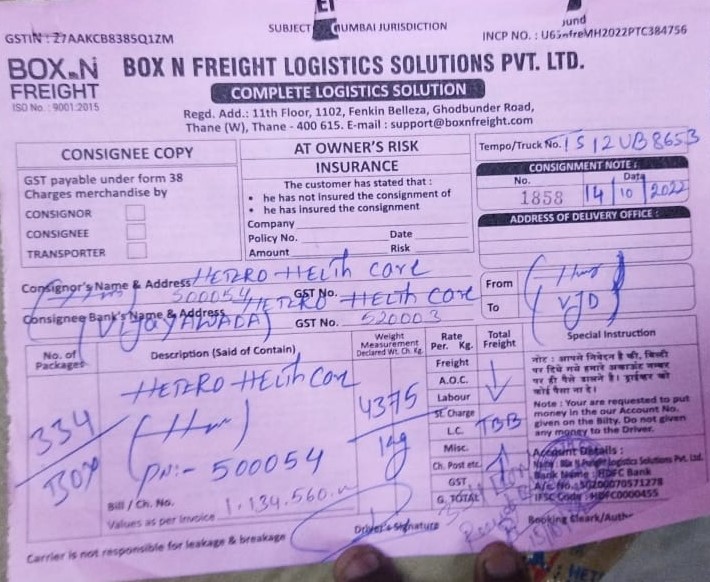 GSTIN : 27AAKCB8385Q1ZM
SUBJECT MUMBAI JURISDICTION
INCP NO. :
BOX N FREIGHT
ISO No. : 9001:2015
BOX N FREIGHT LOGISTICS SOLUTIONS PVT. LTD.
COMPLETE LOGISTICS SOLUTION
Regd. Add.: 11th Floor, 1102, Fenkin Belleza, Ghodbunder Road,
Thane (W), Thane - 400 615. E-mail : support@boxnfreight.com
CONSIGNEE COPY
GST payable under form 38
Charges merchandise by
CONSIGNOR
CONSIGNEE
TRANSPORTER
AT OWNER'S RISK
INSURANCE
The customer has stated that :
• he has not insured the consignment of
• he has insured the consignment
Company
Policy No. Date
Amount Risk
Tempo/Truck No. 12 UB 8653
CONSIGNMENT NOTE :
No. Date
1858 14 10 2022
ADDRESS OF DELIVERY OFFICE :
Consignor's Name & Address HETERO HELTH CARE
500054 GST No.
Consignee Bank's Name & Address HETERO HELTH CARE
(VIJAYAWADA) GST No. 520003
From
To VJD
No. of Packages
Description (Said of Contain)
Weight Measurement Declared Wt. Ch. Kg.
Rate Per. Kg.
Total Freight
Special Instruction
334
BOX
HETERO HELTH CARE
PN:- 500054
4375
kg
Freight
A.O.C.
Labour
St. Charge
L.C. TBB
Misc.
Ch. Post etc.
GST
G. TOTAL
नोट : आपसे निवेदन है की, बिल्टी
पर दिये गये हमारे अकाउंट नम्बर
पर ही पैसे डालने है। ड्राईवर को
कोई पैसा ना दे।
Note : Your are requested to put
money in the our Account No.
given on the Bilty. Do not given
any money to the Driver.
Account Details :
Name : Box N Freight Logistics Solutions Pvt. Ltd.
Bank Name : HDFC Bank
A/c. No. : 50200070571278
IFSC Code : HDFC0000455
Bill / Ch. No.
Values as per Invoice 1.134.560.
Driver's Signature
Booking Cleark/Auth
Carrier is not responsible for leakage & breakage